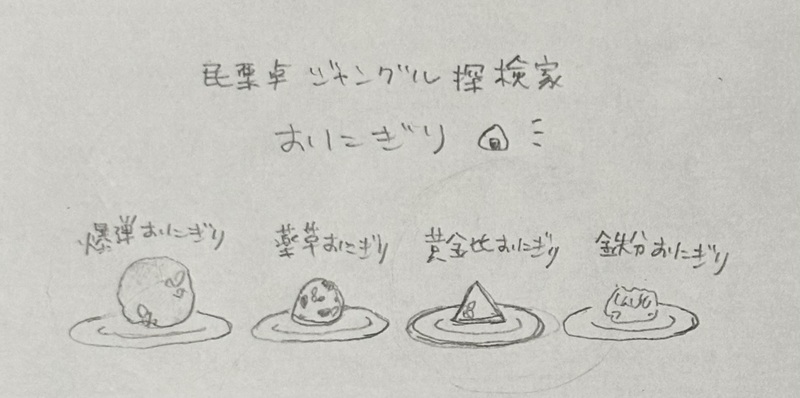 民栗卓 ジャングル 探検家
おにぎり
爆弾おにぎり
薬草おにぎり
黄金比おにぎり
鉄分おにぎり